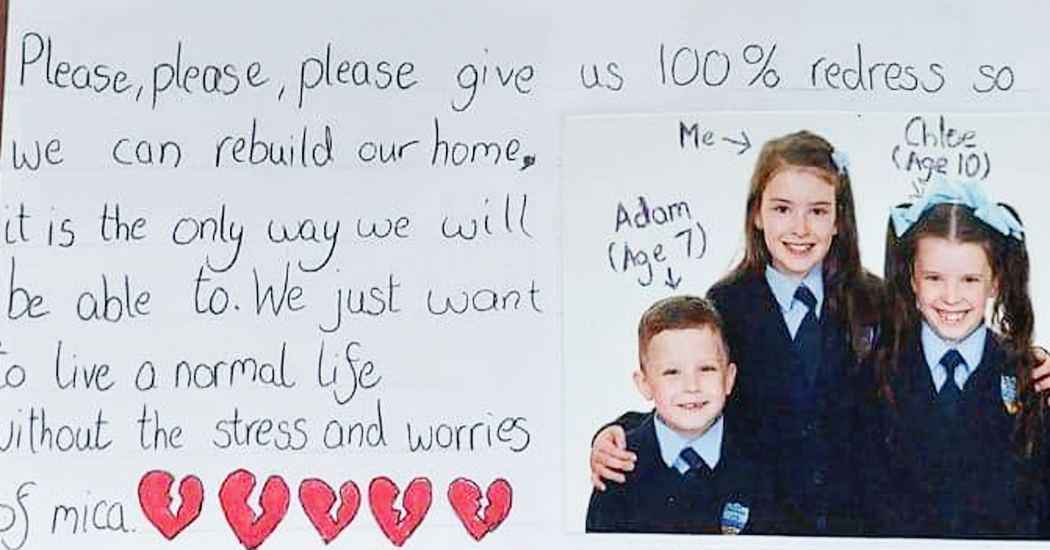 Please, please, please give us 100% redress so
we can rebuild our home,
it is the only way we will
be able to. We just want
to live a normal life
without the stress and worries
of mica.
Me →
Chloe
(Age 10)
Adam
(Age 7)